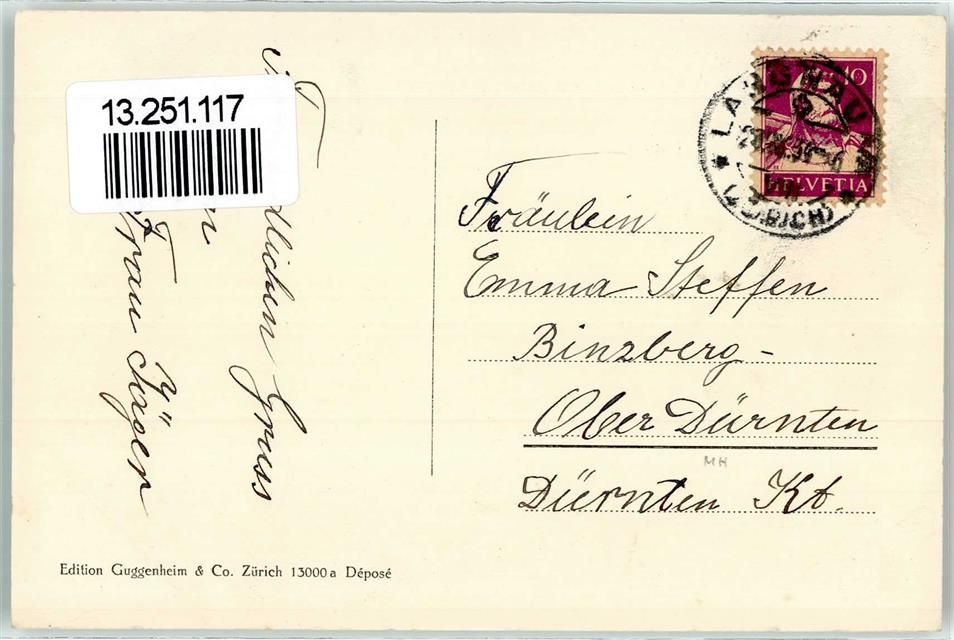 13.251.117
dlichen Gruss
Frau Jäger
Fräulein
Emma Steffen
Binzberg-
Ober Dürnten
Dürnten Kt.
MH
10
HELVETIA
LANGNAU
(ZÜRICH)
Edition Guggenheim & Co. Zürich 13000 a Déposé